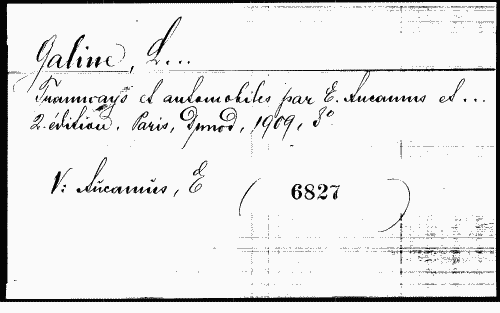 Galine, L...
Tramways et automobiles par E. Aucamus et ...
2. édition. Paris, Dunod, 1909, 8°
V: Aucamus, E
( 6827 )